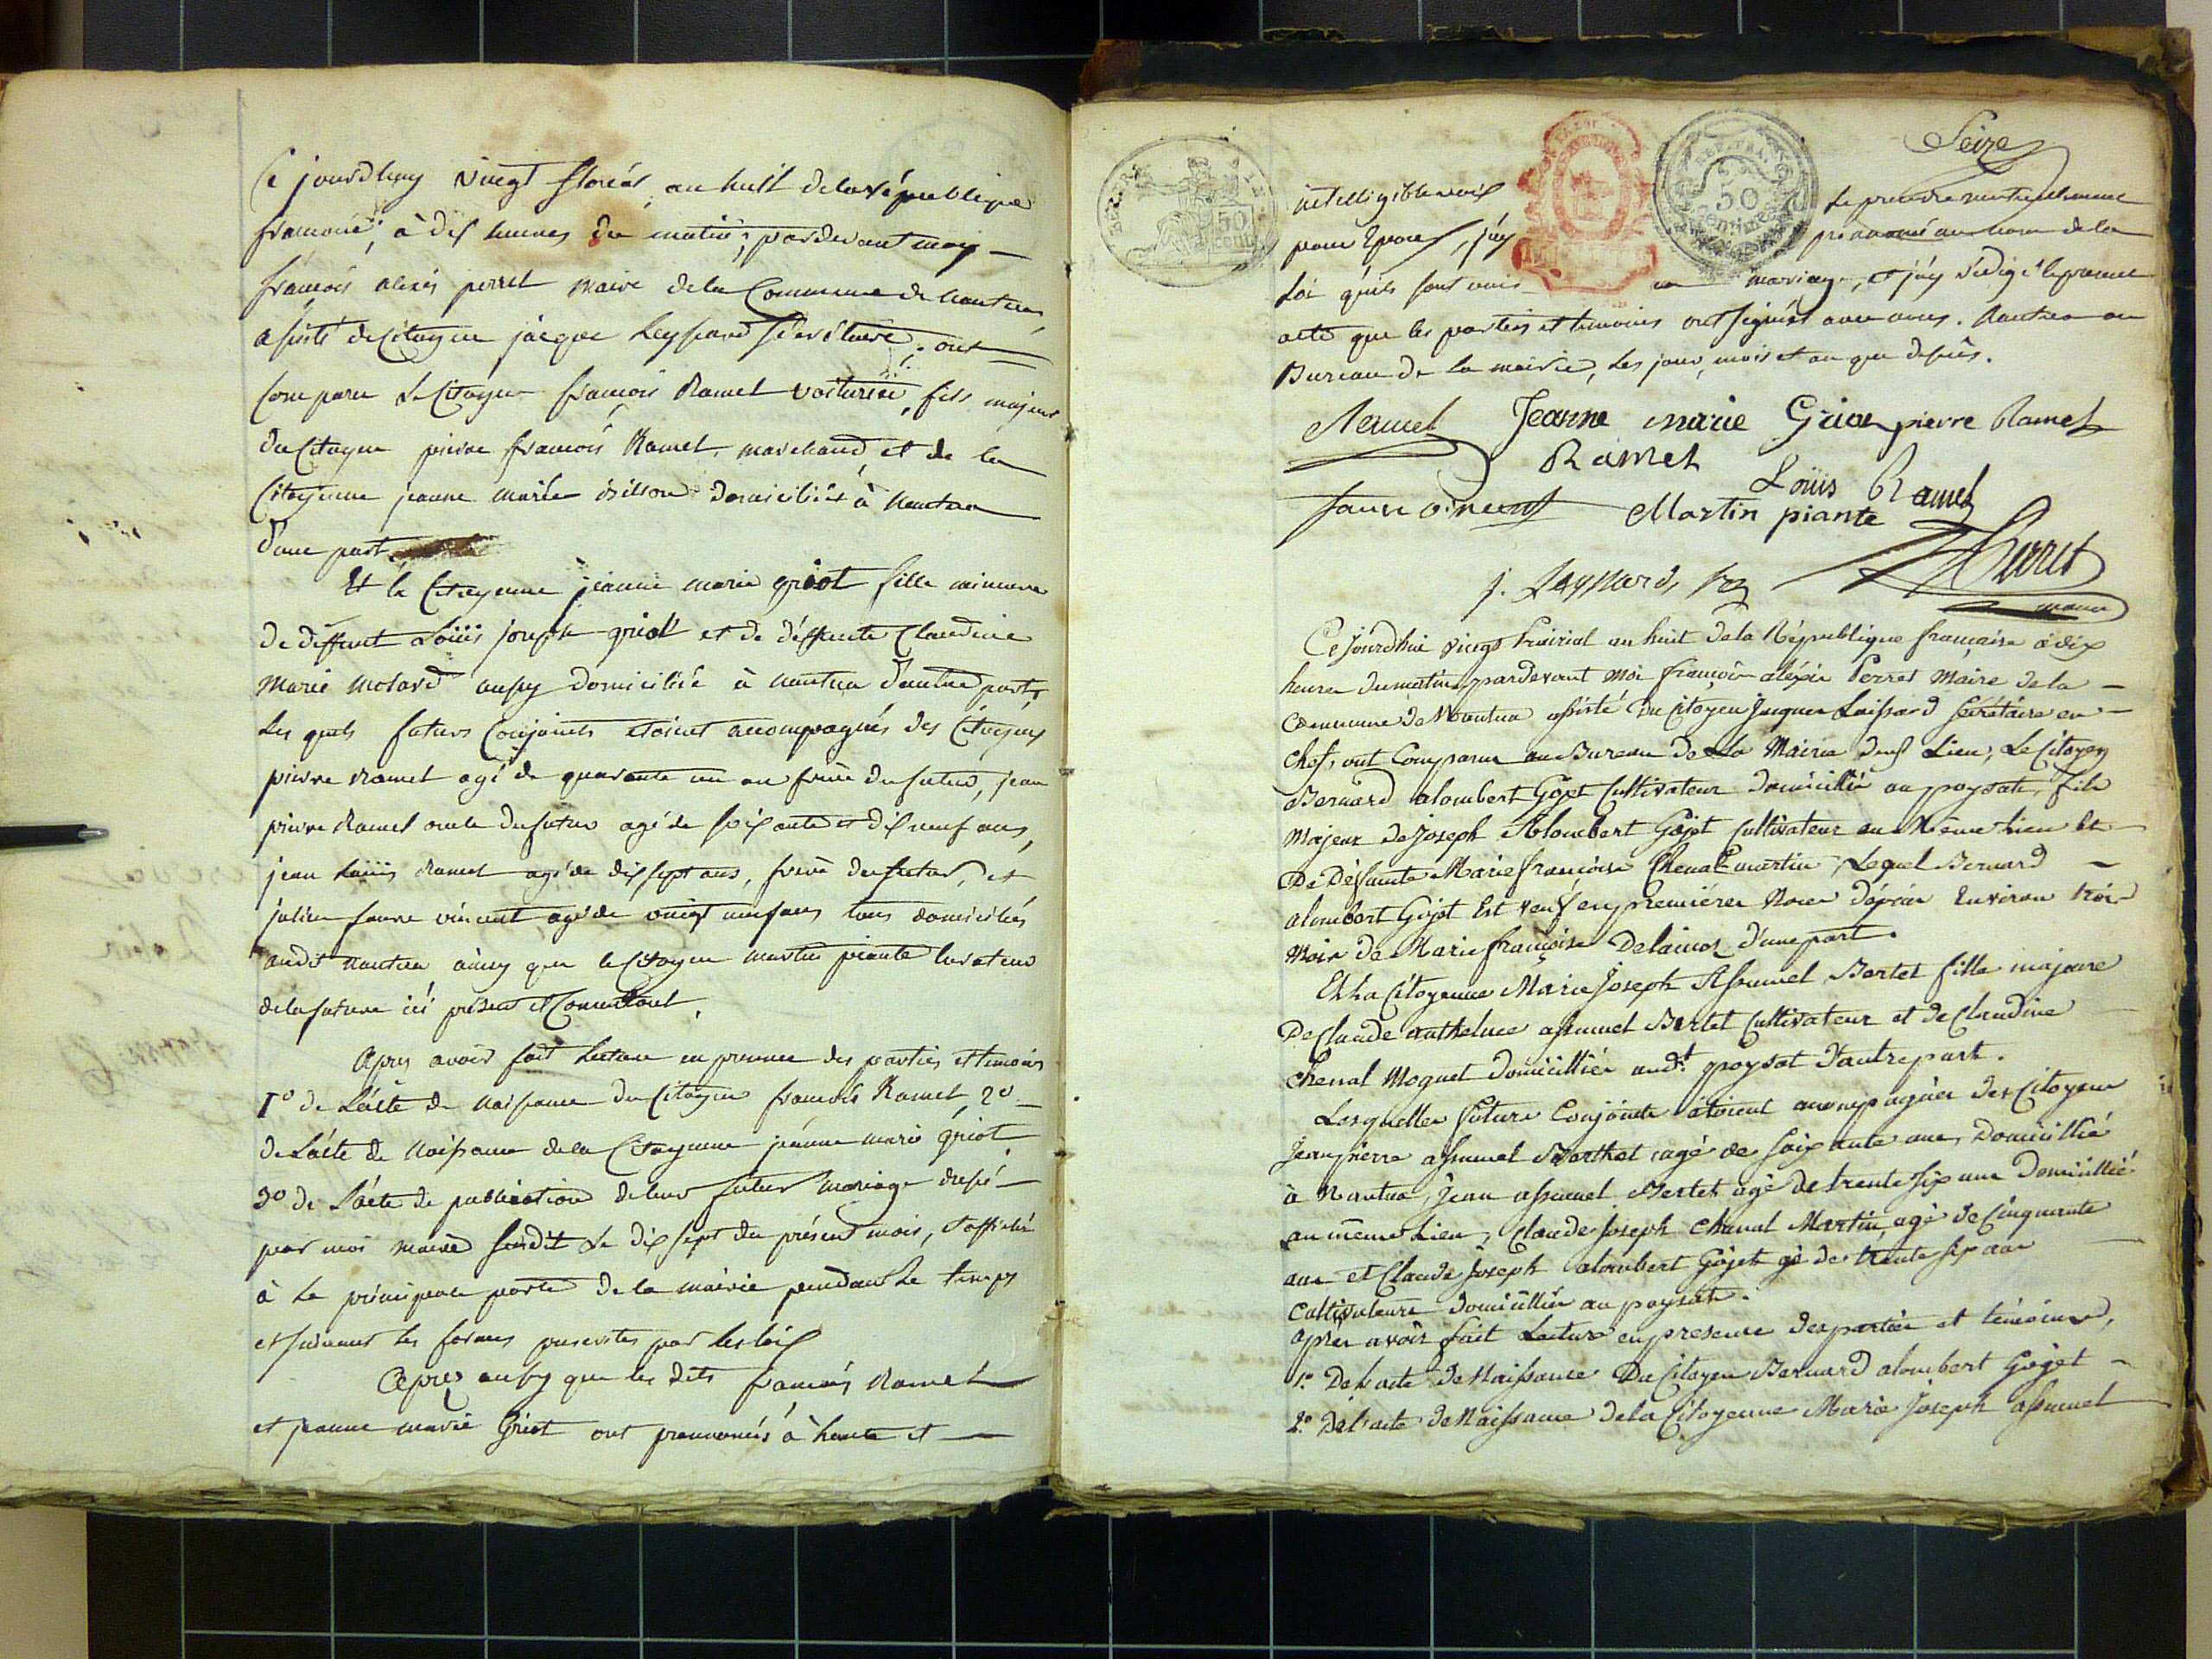 Ce jourdhuy vingt floréal an huit de la république
francaise, à dix heures du matin; pardevant moy
françois alexis perret maire de la Commune de Nantua,
assisté du Citoyen jacque Leyssard secrétaire; ont
Comparu Le Citoyen françois Ramel voiturier, fils majeur
du Citoyen pierre françois Ramel, marchand, et de la
Citoyenne jeanne marie domiciliés à Nantua
d'une part,
Et la Citoyenne jeanne marie griot fille mineure
de deffunt Loüis joseph griot et de deffunte Claudine
Marie Molard aussy domiciliée à Nantua d'autre part,
Les quels futurs Conjoints étoient accompagnés des Citoyens
pierre Ramel agé de quarante un an frère du futur, jean
pierre Ramel oncle du futur agé de soixante et dix neuf ans,
jean Loüis Ramel agé de dix sept ans, frère du futur, et
julien faure vincent agé de vingt neuf ans tous domiciliés
audit Nantua ainsy que le Citoyen martin piante curateur
de la future ici présent et Consentant.
Apres avoir fait lecture en presence des parties et temoins
1º de L'acte de naissance du Citoyen francois Ramel, 2º
de L'acte de Naissance de la Citoyenne jeanne marie griot
3º de L'acte de publication de leur futur Mariage dressé
par moi maire susdit Le dix sept du présent mois, et affiché
à la principale porte de la mairie pendant le temps
et suivant les formes prescrites par les loix
Apres aussy que les dits françois Ramel
et jeanne marie Griot ont prononcés à haute et
Seize
intelligible voix se prendre mutuellement
pour Epoux, j'ay prononcé au nom de la
Loi qu'ils sont unis en mariage, et j'ay rédigé le present
acte que les parties et temoins ont signés avec nous. Nantua au
Bureau de la mairie, les jour, mois et an que dessus.
Ramel Jeanne marie Griot pierre Ramel
Ramel
Loüis Ramel
faure vincent Martin piante
j. Leyssard, Perret
maire
Ce Jourdhui vingt prairial an huit de la République francaise à dix
heures du matin, pardevant moi françois aléxis Perret Maire de la
commune de Nantua assisté du Citoyen Jacques Laissard secrétaire en
chef, ont Comparu au Bureau de La Mairie dud Lieu, Le Citoyen
Bernard alombert Gojet Cultivateur Domicillié au poysat, fils
Majeur de Joseph Alombert Gojet Cultivateur au Même Lieu et
De Défunte Marie françoise Chenal martin, Lequel Bernard
alombert Gojet Est veuf en premières Noces dépuis Environ trois
Mois de Marie françoise Delainos d'une part.
Et La Citoyenne Marie Joseph Assumel Bertet fille majeure
De Claude anthelme assumel Bertet Cultivateur et de Claudine
Chenal Moguet Domicilliés aud.t poysat d'autre part.
Lesquelles futurs Conjoints étoient accompagnés des Citoyens
Jean pierre assumel Berthet agé de soixante ans, Domicillié
à Nantua, Jean assumel Bertet agé de trente six ans Domicillié
au même Lieu, Claude Joseph Chenal Martin, agé de Cinquante
ans et Claude Joseph alombert Gojet gé de trente six ans
Cultivateurs Domicilliés au poysat.
Après avoir fait Lecture en presence des parties et témoins,
1º De L'acte de Naissance Du Citoyen Bernard alombert Gojet
2º De L'acte de Naissance de la Citoyenne Marie Joseph assumel
50
Centimes
50
cent